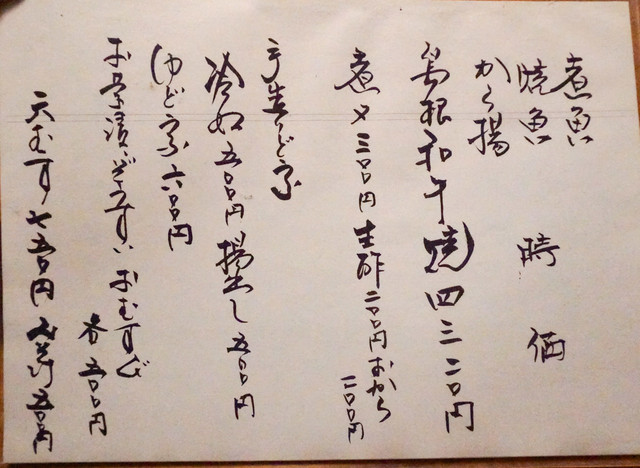 煮魚
焼魚 時価
から揚
島根和牛焼 四三二〇円
煮〆 三〇〇円 生酢 二〇〇円 おから 二〇〇円
手造りどうふ
冷奴 五〇〇円 揚出し 五〇〇円
ゆどうふ 六〇〇円
お茶漬 ぞうすい おむすび
各 五〇〇円
天むす 七五〇円 五〇〇円